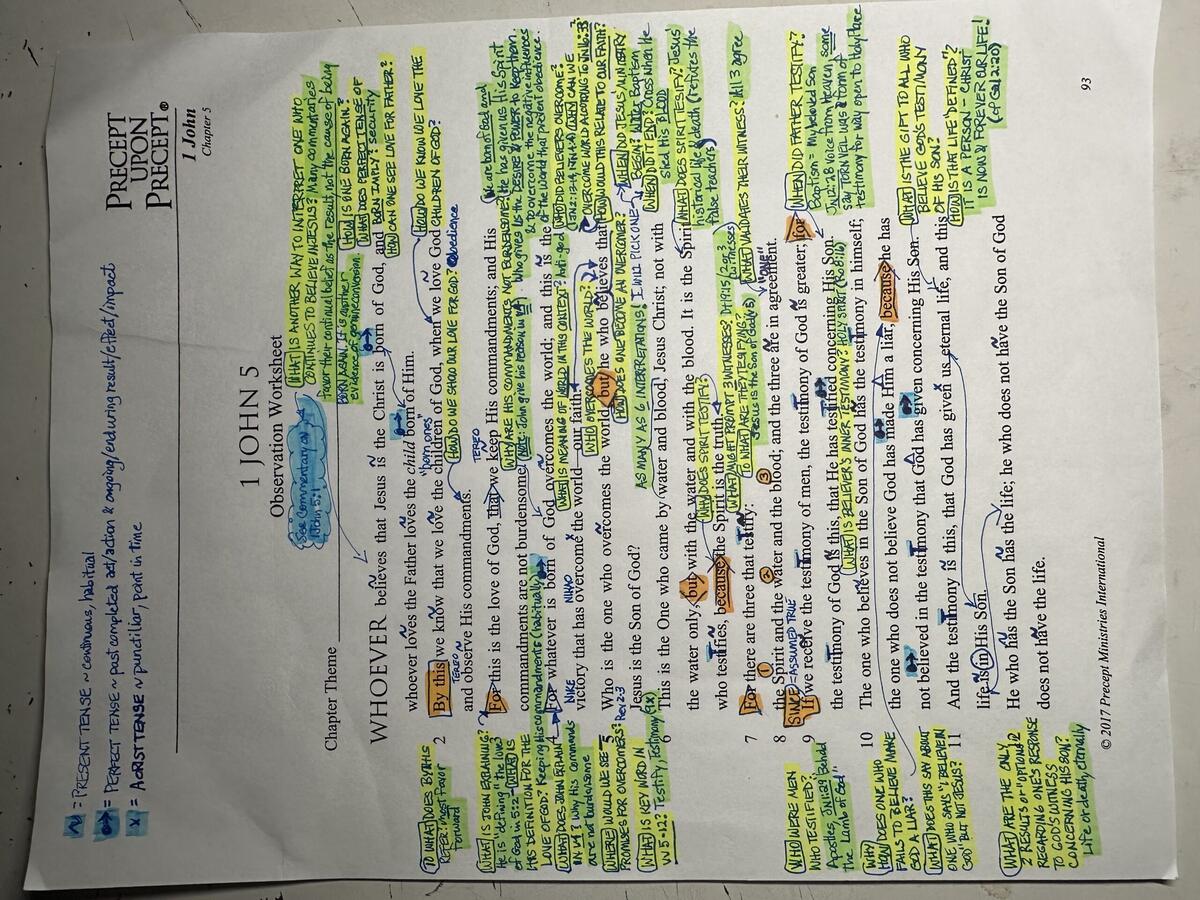 ~ = PRESENT TENSE ~ continuous, habitual
= PERFECT TENSE ~ past completed act/action & ongoing/enduring result/effect/impact
x = AORIST TENSE ~ punctiliar, point in time
PRECEPT
UPON
PRECEPT®
1 John
Chapter 5
1 JOHN 5
Observation Worksheet
Chapter Theme
See Commentary on
1 John 5:1
WHAT IS ANOTHER WAY TO INTERPRET ONE WHO
CONTINUES TO BELIEVE JESUS? Many commentaries
favor then continual belief as the result, not the cause of being
BORN AGAIN. It is another
evidence of genuine conversion.
HOW IS ONE BORN AGAIN?
WHAT DOES PERFECT TENSE OF
BORN IMPLY? security
HOW CAN ONE SEE LOVE FOR FATHER?
WHOEVER believes that Jesus is the Christ is born of God, and
whoever loves the Father loves the child born of Him.
"born ones"
HOW DO WE KNOW WE LOVE THE
CHILDREN OF GOD?
TO WHAT DOES BY THIS
REFER? most favor
forward
2 By this we know that we love the children of God, when we love God
TEREO
and observe His commandments.
HOW DO WE SHOW OUR LOVE FOR GOD? Obedience
WHAT IS JOHN EXPLAINING?
He is "defining" the love
of God in 5:2 - WHAT IS
HIS DEFINITION FOR THE
LOVE OF GOD? Keeping His commandments (habitually)
TEREO
3 For this is the love of God, that we keep His commandments; and His
commandments are not burdensome.
WHY ARE HIS COMMANDMENTS NOT BURDENSOME?
(Note: John give his reason in v4)
We are born of God and
He has given us His Spirit
Who gives us the DESIRE & POWER to keep them
& to overcome the negative influences
of the world that prevent obedience.
WHAT DOES JOHN EXPLAIN
IN V4? Why His commands
are not burdensome
4 For whatever is born of God overcomes the world; and this is the
NIKE
NIKAO
victory that has overcome the world—our faith.
WHAT IS MEANING OF WORLD IN THIS CONTEXT? Anti-god
WHO OVERCOMES THE WORLD?
WHERE WOULD WE SEE
PROMISES FOR OVERCOMERS?
Rev 2-3
5 Who is the one who overcomes the world, but he who believes that
Jesus is the Son of God?
HOW DOES ONE BECOME AN OVERCOMER?
AS MANY AS 6 INTERPRETATIONS! I WILL PICK ONE
WHAT IS KEY WORD IN
VV 5-12? Testify, Testimony (9x)
6 This is the One who came by water and blood, Jesus Christ; not with
the water only, but with the water and with the blood. It is the Spirit
who testifies, because the Spirit is the truth.
WHEN DID JESUS' MINISTRY
BEGIN? Water Baptism
WHEN DID IT END? Cross when He
shed His BLOOD
WHAT DOES SPIRIT TESTIFY? Jesus'
historical life & death (refutes the
false teachers)
WHY DOES SPIRIT TESTIFY?
WHAT MIGHT PROMPT 3 WITNESSES? Dt 19:15 (2 or 3 witnesses)
TO WHAT ARE THEY TESTIFYING?
Jesus is the Son of God (v5)
WHAT VALIDATES THEIR WITNESS? All 3 agree
7 For there are three that testify:
8 the Spirit and the water and the blood; and the three are in agreement.
1 2 3
"ONE"
SINCE = ASSUMED TRUE
9 If we receive the testimony of men, the testimony of God is greater; for
the testimony of God is this, that He has testified concerning His Son.
WHO WERE MEN
WHO TESTIFIED?
Apostles, Jn 1:29 Behold
the Lamb of God"
WHEN DID FATHER TESTIFY?
Baptism = My beloved Son
Jn 12:28 Voice from Heaven, some
say TORN VEIL was a form of
testimony for way open to Holy Place
WHAT IS BELIEVER'S INNER TESTIMONY? HOLY SPIRIT (Ro 8:16)
10 The one who believes in the Son of God has the testimony in himself;
the one who does not believe God has made Him a liar, because he has
not believed in the testimony that God has given concerning His Son.
WHY
HOW DOES ONE WHO
FAILS TO BELIEVE MAKE
GOD A LIAR?
WHAT DOES THIS SAY ABOUT
ONE WHO SAYS "I BELIEVE IN
GOD" BUT NOT JESUS?
11 And the testimony is this, that God has given us eternal life, and this
life is in His Son.
WHAT IS THE GIFT TO ALL WHO
BELIEVE GOD'S TESTIMONY
OF HIS SON?
HOW IS THAT LIFE "DEFINED"?
IT IS A PERSON - CHRIST
IS NOW & FOREVER OUR LIFE!
(cf Gal 2:20)
WHAT ARE THE ONLY
2 RESULTS or "OPTIONS"
REGARDING ONE'S RESPONSE
TO GOD'S WITNESS
CONCERNING HIS SON?
Life or death, eternally
12 He who has the Son has the life; he who does not have the Son of God
does not have the life.
© 2017 Precept Ministries International
93